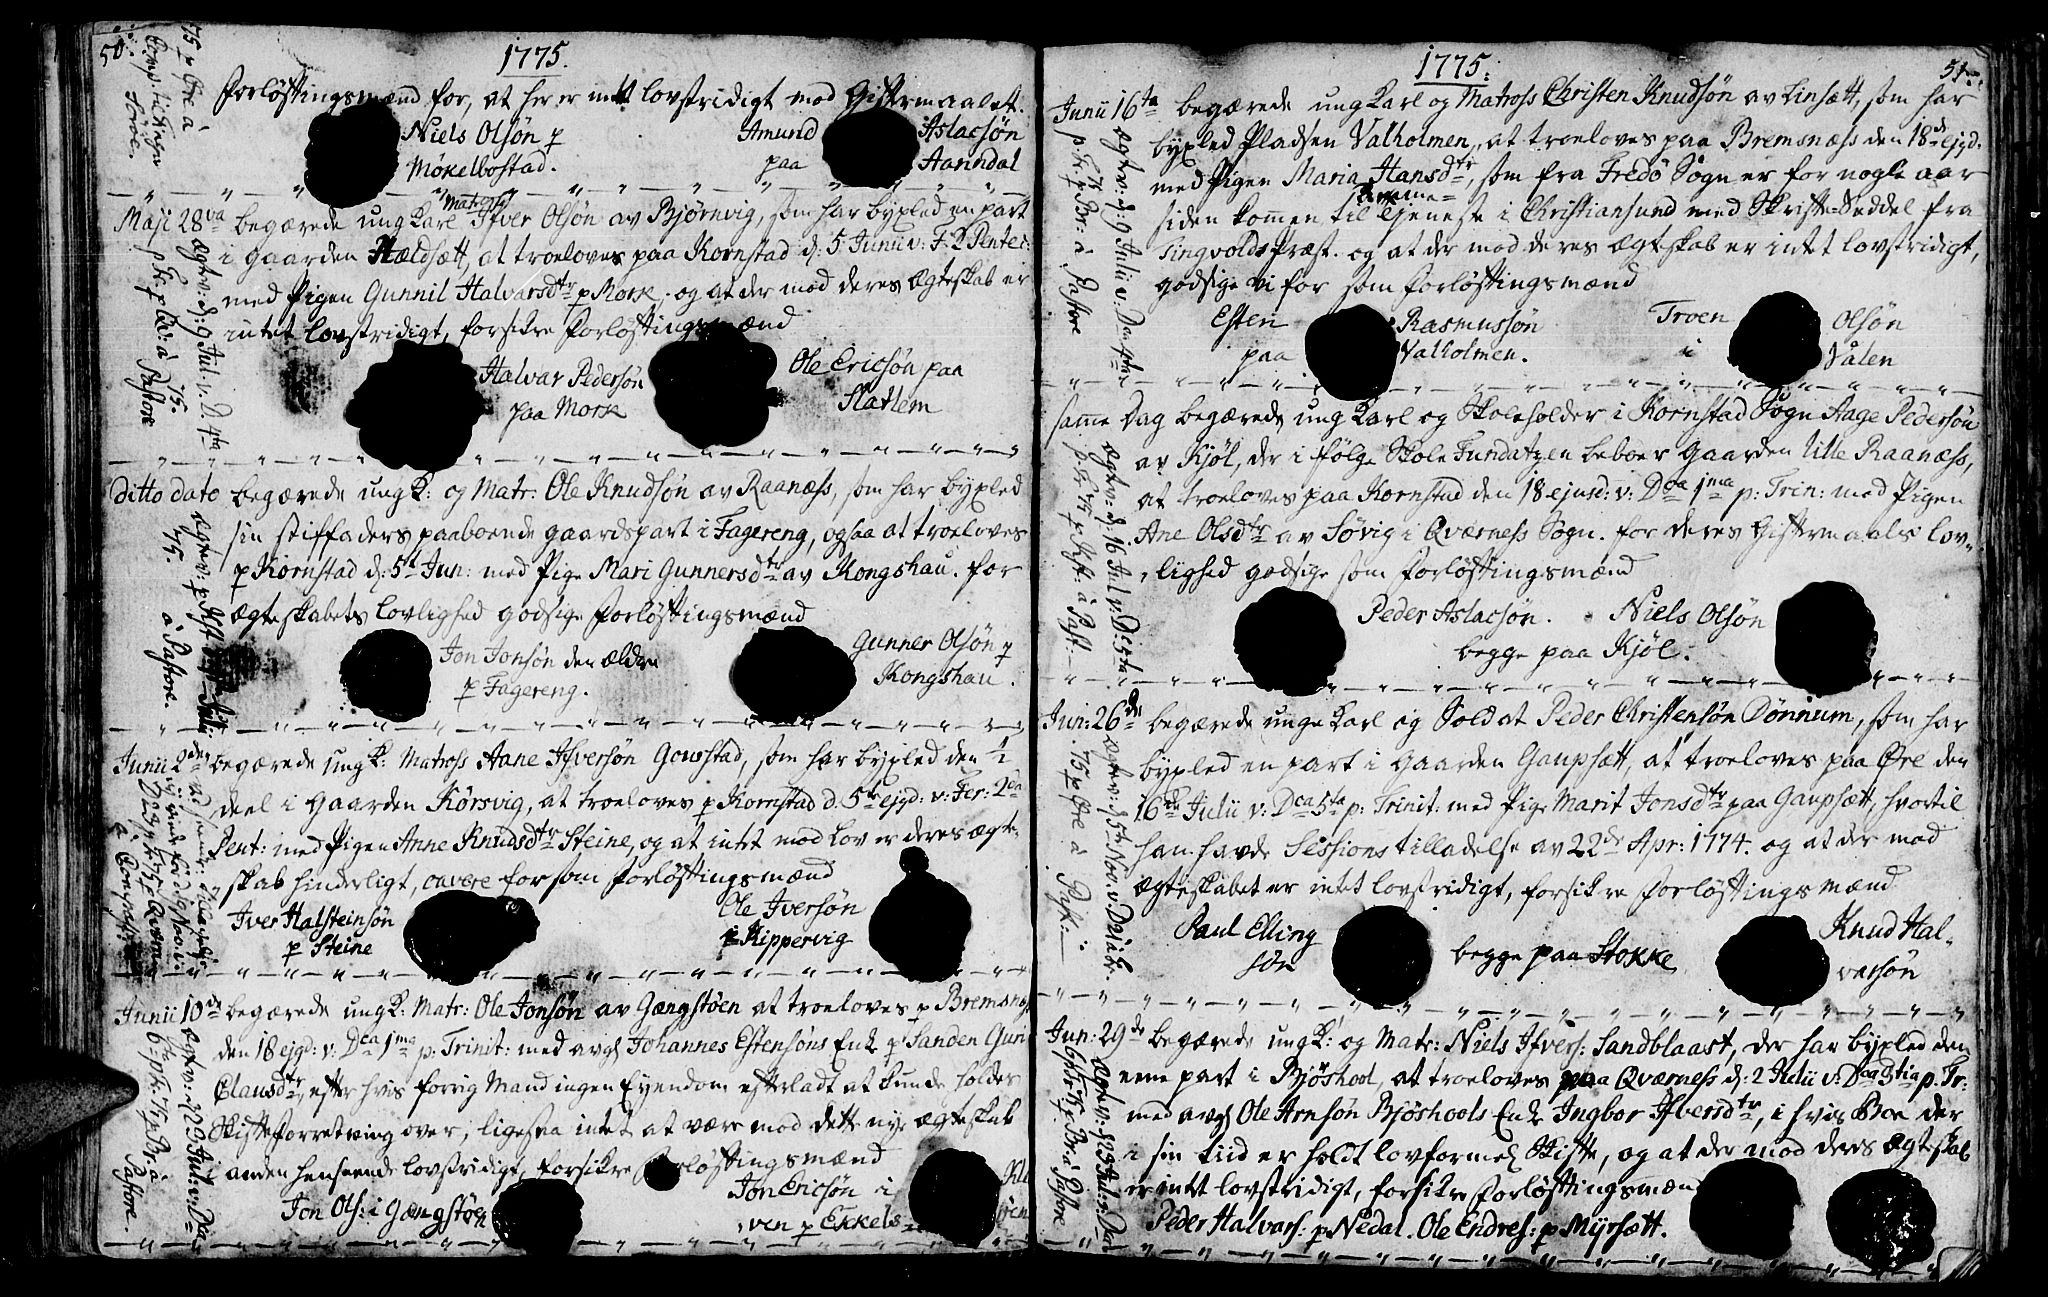 50.
1775.
Forløftingsmænd for, at her er intet lovstridigt mod Gistermaalet.
Niels Olsøn p Amund Aslacsøn
Møkelbostad. paa Aarndal
Maji 28va begærede ung Karl Matross Ifver Olsøn av Bjørnvig, som har bypled en part
i Gaarden Hældsætt, at troeloves paa Kornstad d: 5 Junii v: F. 2 Pentec:
med Pigen Gunnil Halvarsdtr p Mork, og at der mod deres Ægteskab er
intet lovstridigt, forsikre Forløftingsmænd
Halvar Pedersøn Ole Ericsøn paa
paa Mork Slatlem
Ditto dato begærede ung K: og Matr: Ole Knudsøn av Raanæss, som har bypled
sin stiffaders paaboende gaardspart i Fagereng, ogsaa at troeloves
p Kornstad d: 5te Jun: med Pige Mari Gunnersdtr av Kongshau. for
Ægteskabets lovlighed godsige Forløftingsmænd
Jon Jonsøn den ældre Gunner Olsøn p
p Fagereng. Kongshau.
Junii 2den begærede ung K: Matross Aane Ifversøn Goustad, som har bypled den 1/2
deel i Gaarden Kørsvig, at troeloves p Kornstad d. 5te ejgd: v: Fer: 2da
Pent: med Pigen Anne Knudsdtr Steine, og at intet mod Lov er deres Ægte-
skab hinderligt, cavere for som Forløftingsmænd
Iver Halsteinsøn Ole Iversøn
p Steine i Kippervig
Junii 10de begærede ung K: Matr: Ole Jonsøn av Gængstøen at troeloves p Bremsnæs
den 18 ejgd: v: Dca 1ma p: Trinit: med avg Johannes Estensøns Enk p Sanden Guri
Clausdtr, efter hvis forrig Mand ingen Eyendom efterladt at kunde holdes
Skifteforretning over, ligesaa intet at være mod dette nye Ægteskab
i anden henseende lovstridigt, forsikre Forløftingsmænd
Jon Ols: i Gængstøen Jon Ericsøn i
ven p Ekkels
51.
1775.
Junii 16ta begærede ung Karl og Matross Christen Knudsøn av Linsætt, som har
bypled Pladsen Valholmen, at troeloves paa Bremsnæss den 18de ejgd.
med Pigen Maria Hansdtr, som fra Fredø Sogn er for nogle aar
siden kommen til Tjeneste i Christiansund med Skrifte-Seddel fra
Tingvolds Præst. og at der mod deres Ægteskab er intet lovstridigt,
godsige vi for som Forløftingsmænd
Esten Rasmussøn Troen Olsøn
paa Valholmen. i Vaalen
samme Dag begærede ung Karl og Skoleholder i Kornstad Sogn Aage Pedersøn
av Kjøl, der i følge Skole Fundatzen beboer Gaarden lille Raanæss,
at troeloves paa Kornstad den 18 ejusd: v: Dca 1ma p: Trin: med Pigen
Ane Olsdtr av Søvig i Qværness Sogn. for deres Gistermaals lov-
lighed godsige som Forløftingsmænd
Peder Aslacsøn. Niels Olsøn
begge paa Kjøl.
Juni: 26de begærede unge Karl og Soldat Peder Christensøn Dønnum, som har
bypled en part i Gaarden Gaupsætt, at troeloves paa Øre den
16de Julii v: Dca 5ta p: Trinit: med Pige Marit Jonsdtr paa Gaupsætt, hvortil
han havde Sessions tilladelse av 22de Apr: 1774. og at der mod
Ægteskabet er intet lovstridigt, forsikre Forløftingsmænd
Paul Elling Knud Hal-
søn begge paa Stokke varsøn
Jun: 29de begærede ung K: og Matr: Niels Ifvers: Sandblaast, der har bypled den
eene part i Bjøshool, at troeloves paa Qværness d: 2 Julii v: Dca 3tia p. Tr:
med avg Ole Arnsøn Bjøshools Enk Ingbor Ifversdtr, i hvis Boe der
i sin tiid er holdt lovformeg Skifte, og at der mod deres Ægteskab
er intet lovstridigt, forsikre Forløftingsmænd
Peder Halvars: p Nedal. Ole Endres: p Myrsætt.